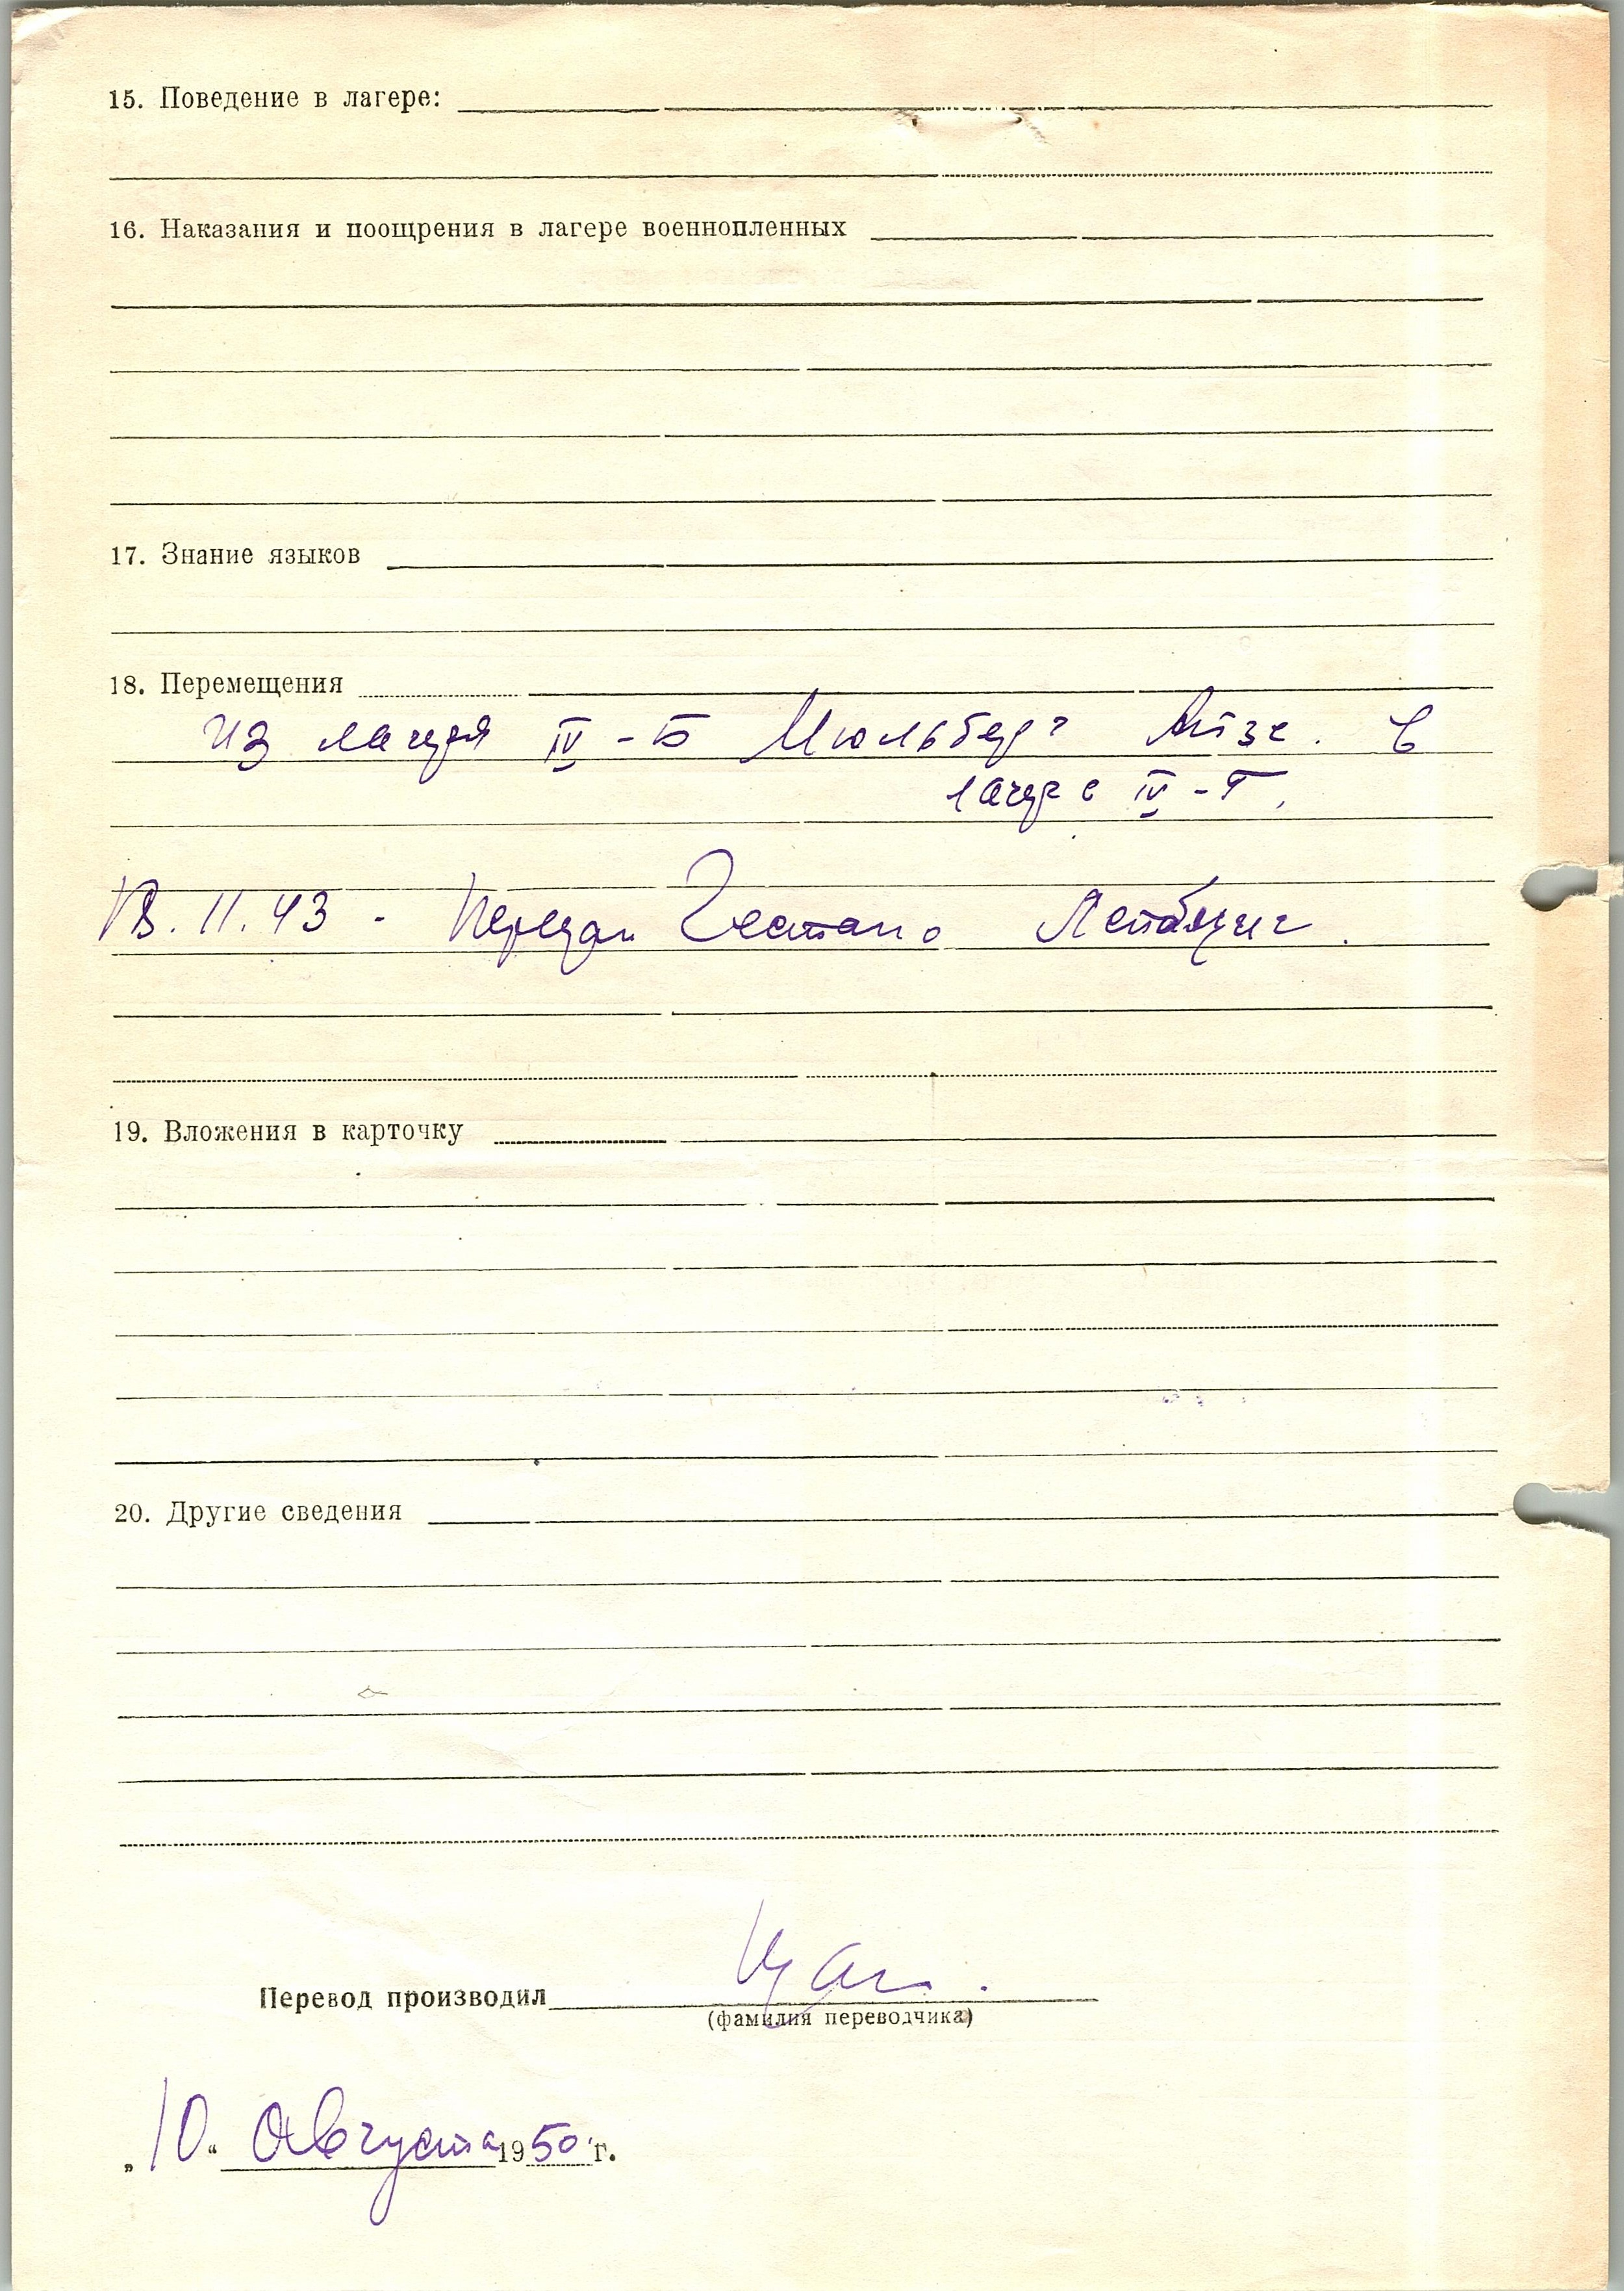 15. Поведение в лагере:
16. Наказания и поощрения в лагере военнопленных
17. Знание языков
18. Перемещения
Из лагеря IV-Б Мюльберг в
лагере IV-Г.
11.43 - Передан Гестапо Лейпциг.
19. Вложения в карточку
20. Другие сведения
Перевод производил
(фамилия переводчика)
„10“ Августа 1950 г.